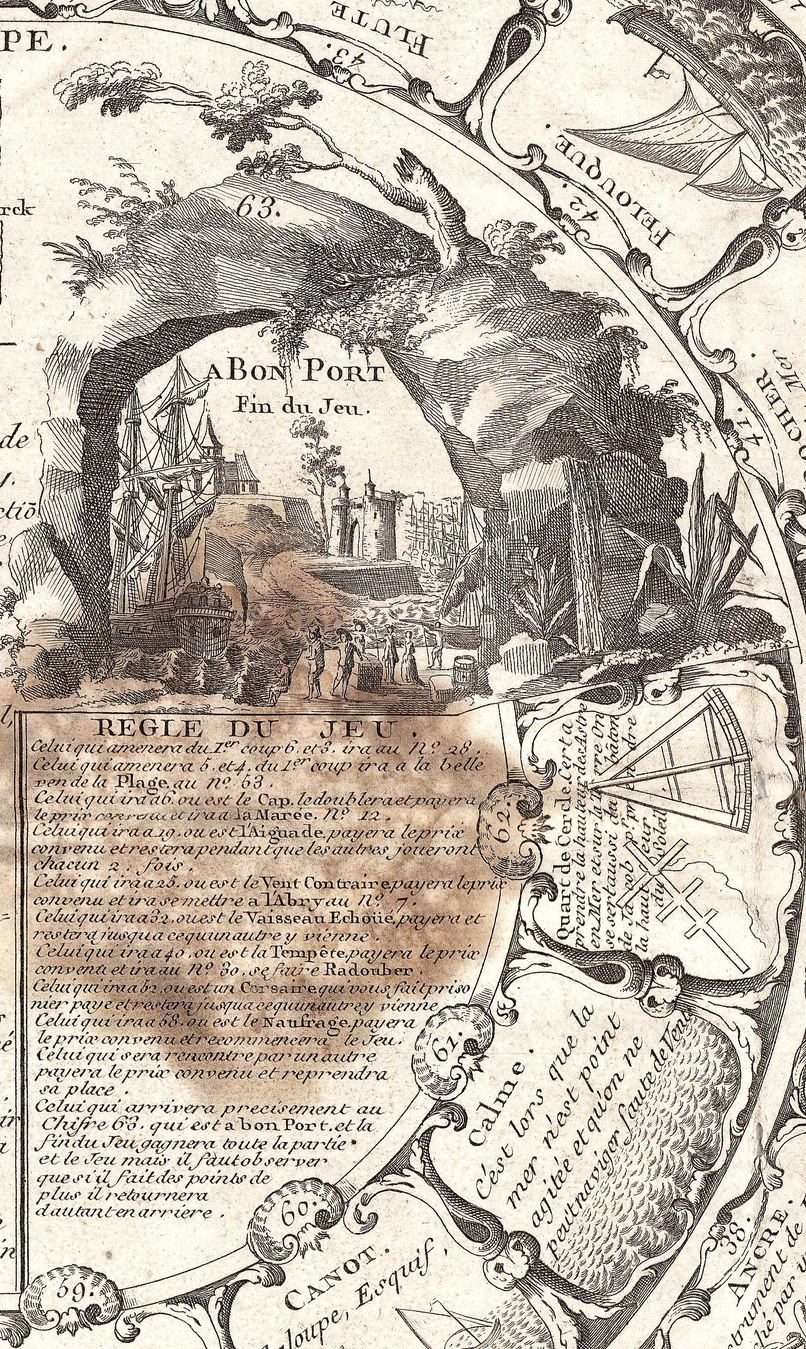 PE.
FLUTE
43.
FELOUQUE.
42.
rck
63.
A BON PORT
Fin du Jeu.
OCHER
Mer
41.
de
ctiõ
REGLE DU JEU.
Celui qui amenera du 1er coup 6. et 3. ira au N.o 28.
Celui qui amenera 5. et 4. du 1er coup ira a la belle
ven de la Plage au no. 53.
Celui qui ira a 6. ou est le Cap. le doublera et payera
le prix convenu et ira a la Marée. No. 12.
Celui qui ira a 19. ou est l'Aiguade, payera le prix
convenu et restera pendant que les autres joueront
chacun 2. fois.
Celui qui ira a 25. ou est le Vent Contraire, payera le prix
convenu et ira se mettre a l'Abry au No. 7.
Celui qui ira a 32. ou est le Vaisseau Echoüé, payera et
restera jusqu a ce qu un autre y vienne.
Celui qui ira a 40. ou est la Tempête, payera le prix
convenu et ira au No. 30. se faire Radouber.
Celui qui ira a 52. ou est un Corsaire qui vous fait priso
nier paye et restera jusqu a ce qu un autre y vienne
Celui qui ira a 58. ou est le Naufrage, payera
le prix convenu et recommencera le Jeu.
Celui qui sera rencontre par un autre
payera le prix convenu et reprendra
sa place.
Celui qui arrivera precisement au
Chifre 63. qui est a bon Port, et la
fin du Jeu gagnera toute la partie
et le Jeu mais il faut observer
que si il fait des points de
plus il retournera
d'autant en arriere.
62.
Quart de Cercle. Cert a
prendre la hauteur des Astre
en Mer et sur la Terre On
se sert aussi du bâton
de Jacob pr. prendre
la hauteur
du Soleil
61.
Calme.
C'est lors que la
mer n'est point
agitée et qu'on ne
peut naviger faute de Vent
60.
CANOT.
aloupe, Esquif,
59.
38.
ANCRE.
strument de
ché par u